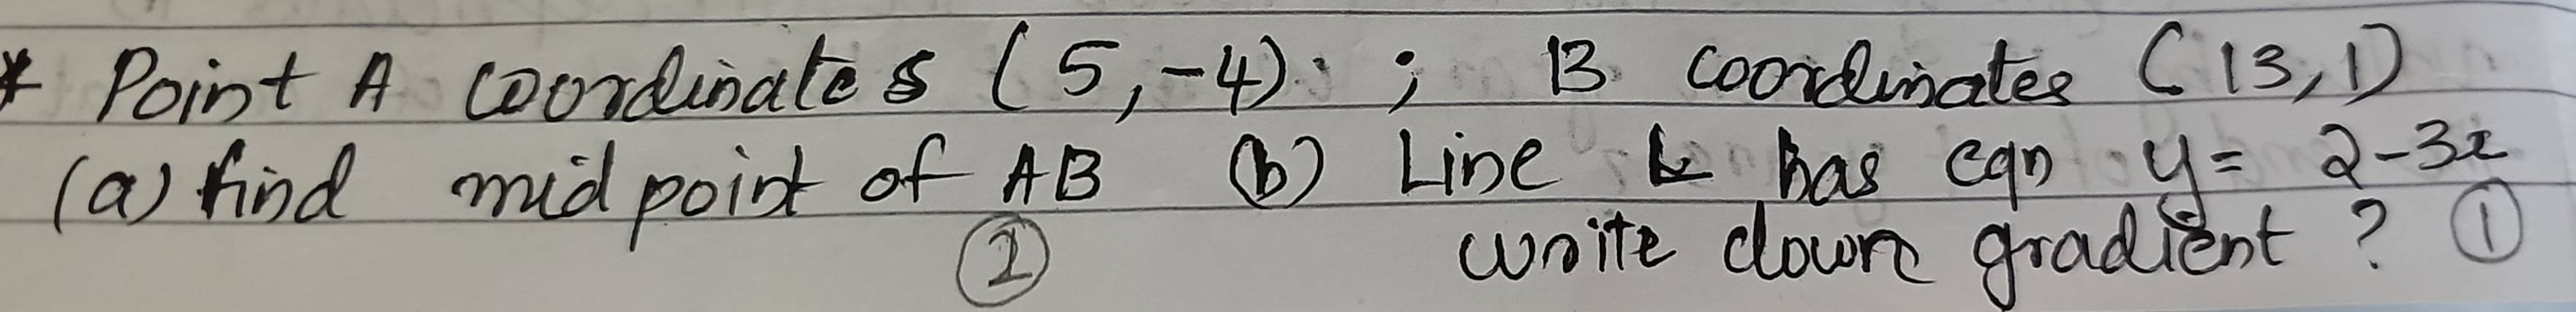 * Point A coordinates (5, -4) ; B coordinates (13, 1)
(a) find midpoint of AB (b) Line L has eqn y = 2-3x
② write down gradient ? ①